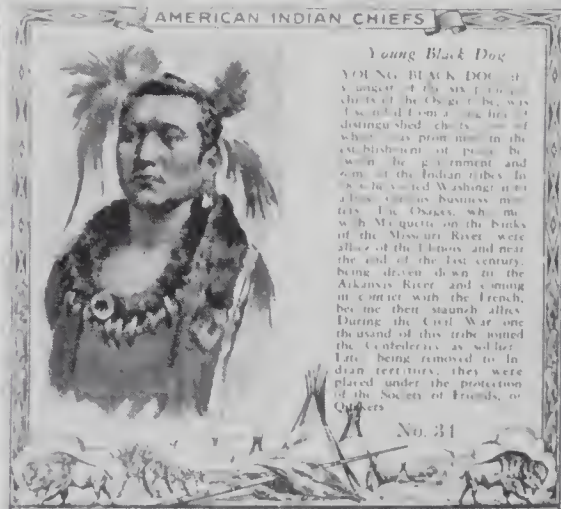 AMERICAN INDIAN CHIEFS
Young Black Dog
YOUNG BLACK DOG, the
youngest of the six
chiefs of the Osage tribe, was
from a
distinguished of
whom was prominent in the
establishment of
the government and
of the Indian tribes. In
he visited Washington to
business
The Osages, who
with on the banks
of the Missouri River, were
allies of the Illinois, and near
the end of the last century,
being driven down to the
Arkansas River and coming
in contact with the French,
became their staunch allies.
During the Civil War one
thousand of this tribe joined
the Confederates as
being removed to In-
dian territory, they were
placed under the protection
of the Society of Friends, or
Quakers
No. 34